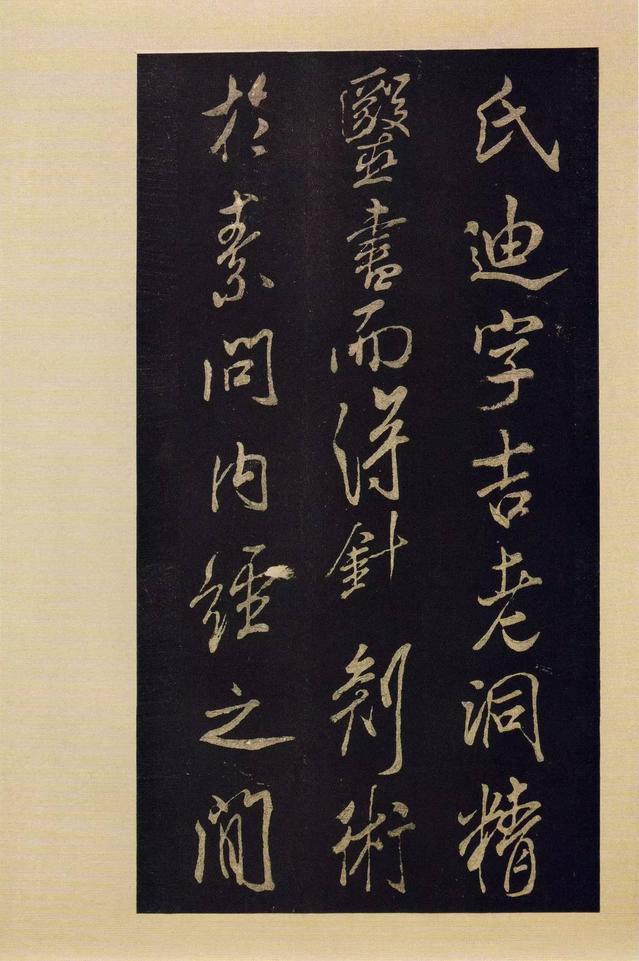 氏迪字吉老洞精
醫書而得針刺術
於素問內經之間